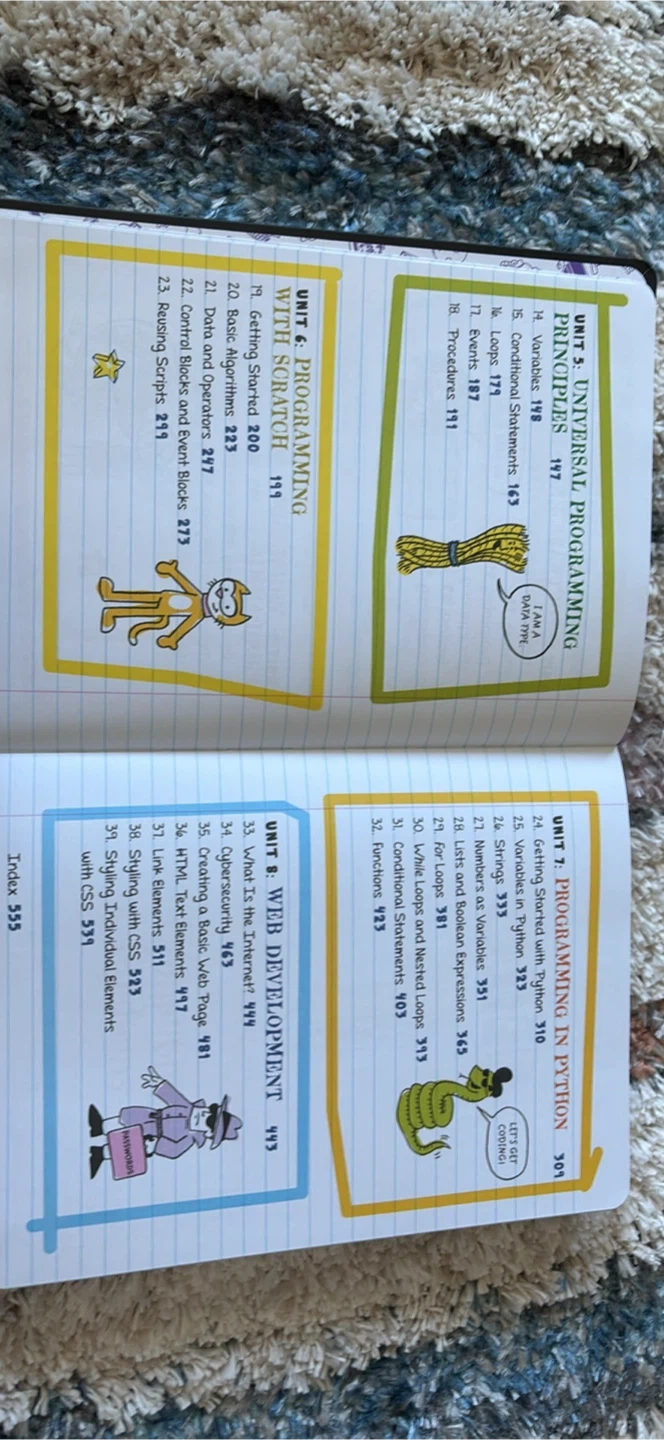 UNIT 5: UNIVERSAL PROGRAMMING
PRINCIPLES 147
14. Variables 148
15. Conditional Statements 163
16. Loops 179
17. Events 187
18. Procedures 191
I AM A
DATA TYPE.
UNIT 6: PROGRAMMING
WITH SCRATCH 199
19. Getting Started 200
20. Basic Algorithms 223
21. Data and Operators 247
22. Control Blocks and Event Blocks 273
23. Reusing Scripts 299
UNIT 7: PROGRAMMING IN PYTHON 309
24. Getting Started with Python 310
25. Variables in Python 323
26. Strings 333
27. Numbers as Variables 351
28. Lists and Boolean Expressions 365
29. For Loops 381
30. While Loops and Nested Loops 393
31. Conditional Statements 403
32. Functions 423
LET'S GET
CODING!
UNIT 8: WEB DEVELOPMENT 443
33. What Is the Internet? 444
34. Cybersecurity 463
35. Creating a Basic Web Page 481
36. HTML Text Elements 497
37. Link Elements 511
38. Styling with CSS 523
39. Styling Individual Elements
with CSS 539
PASSWORDS
Index 555